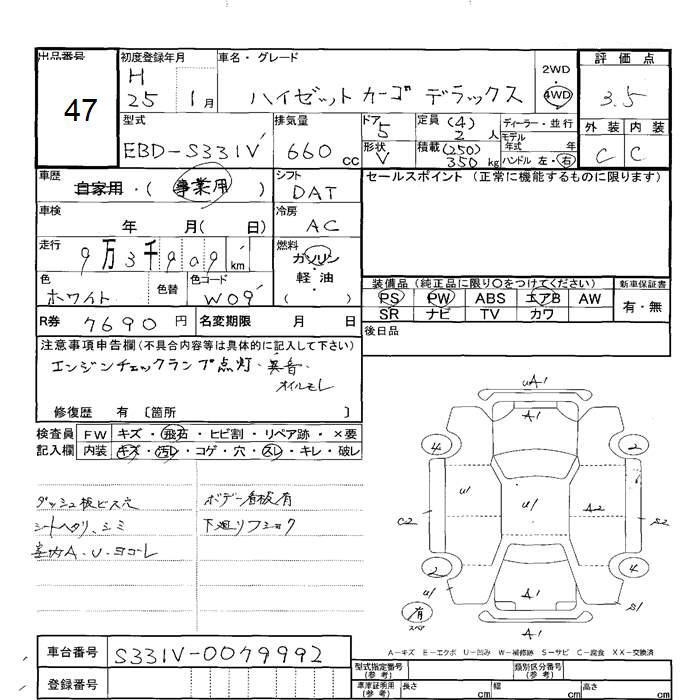 出品番号
47
初度登録年月
H
25 1月
車名・グレード
ハイゼット カーゴ デラックス
2WD
4WD
評価点
3.5
外装 内装
C C
型式
EBD-S331V
排気量
660 cc
ドア
5
形状
V
定員 (4)
2 人
積載 (250)
350 kg
ディーラー・並行
モデル
年式 年
ハンドル 左・右
車歴
自家用・(事業用)
シフト
DAT
車検
年 月( 日)
冷房
AC
走行
9万3千909 km
燃料
ガソリン
軽油
( )
色
ホワイト
色替
色コード
W09
R券 7690円
名変期限 月 日
セールスポイント (正常に機能するものに限ります)
装備品 (純正品に限り○をつけてください)
PS PW ABS エアB AW
SR ナビ TV カワ
新車保証書
有・無
後日品
注意事項申告欄(不具合内容等は具体的に記入して下さい)
エンジンチェックランプ点灯・異音・
オイルモレ
修復歴 有 〔箇所 〕
検査員
記入欄
FW キズ・飛石・ヒビ割・リペア跡・×要
内装 キズ・汚レ・コゲ・穴・スレ・キレ・破レ
ダッシュ板ビス穴
シートヘタリ、シミ
室内A.U.ヨゴレ
ボデー看板有
下廻リフショク
uA1
A1
4
2
u1
u1
A2
C2
S2
2
4
u1
A1
S1
有
スペア
A1
A−キズ E−エクボ U−凹み W−補修跡 S−サビ C−腐食 XX−交換済
車台番号
S331V-0079992
登録番号
型式指定番号
(参考)
類別区分番号
(参考)
車庫証明用
(参考)
長さ cm
幅 cm
高さ cm